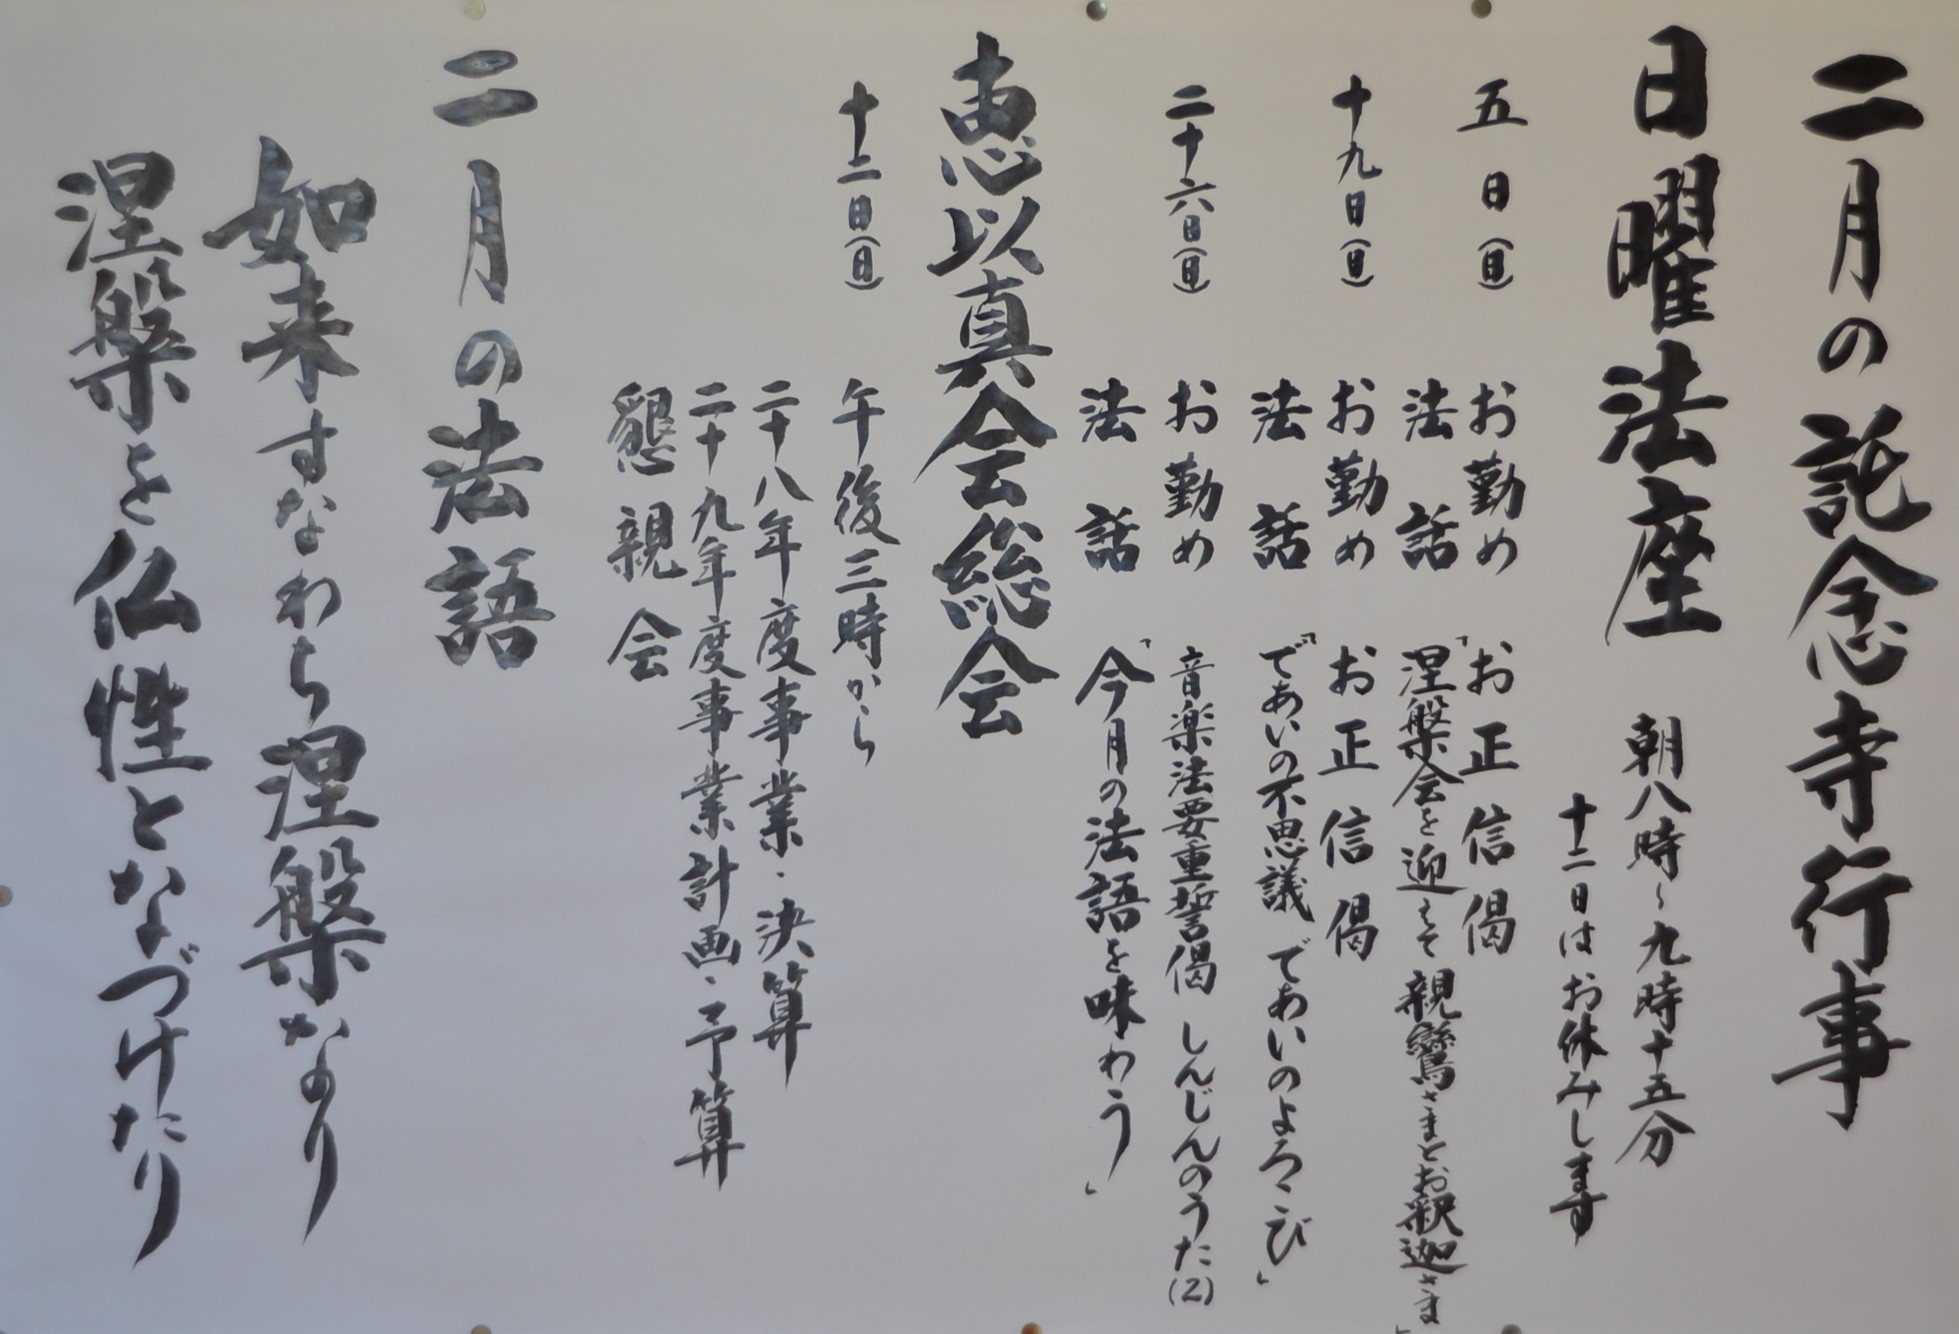 二月の託念寺行事
日曜法座 朝八時〜九時十五分
十二日はお休みします
五日(日) お勤め お正信偈
法話 「涅槃会を迎えて 親鸞さまとお釈迦さま」
十九日(日) お勤め お正信偈
法話 「であいの不思議 であいのよろこび」
二十六日(日) お勤め 音楽法要重誓偈 しんじんのうた(2)
法話 「今月の法語を味わう」
恵以真会総会
十二日(日) 午後三時から
二十八年度事業・決算
二十九年度事業計画・予算
懇親会
二月の法語
如来すなわち涅槃なり
涅槃を仏性となづけたり